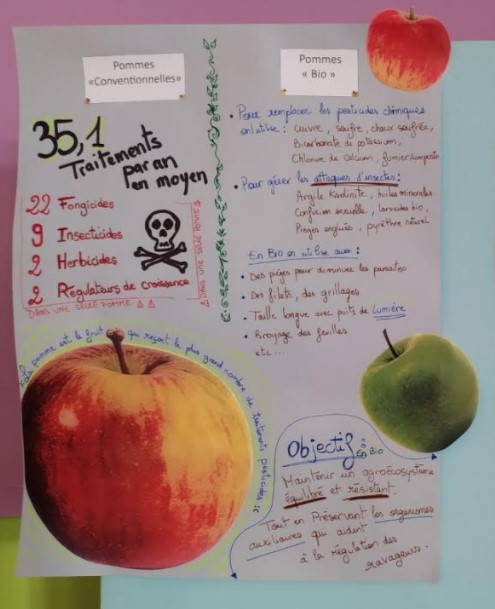 Pommes
«Conventionnelles»
35,1
Traitements
par an
en moyen
22 Fongicides
9 Insecticides
2 Herbicides
2 Régulateurs de croissance
DANS UNE SEULE POMME
DANS UNE SEULE POMME
La pomme est le fruit qui reçoit le plus grand nombre de traitements pesticides
Pommes
« Bio »
• Pour remplacer les pesticides chimiques
on utilise : Cuivre, soufre, chaux soufrée,
Bicarbonate de potassium,
Chlorure de Calcium, fumier
• Pour gérer les attaques d'insectes :
Argile Kaolinite, huiles minérales
Confusion sexuelle, larvicides bio,
Pièges englués, pyrèthre naturel
En Bio on utilise aussi :
• Des pièges pour diminuer les parasites
• Des filets, des grillages
• Taille longue avec puits de lumière
• Broyage des feuilles
etc...
Objectif :
en Bio
Maintenir un agroécosystème
équilibré et résistant.
Tout en Préservant les organismes
auxiliaires qui aident
à la régulation des
ravageurs.